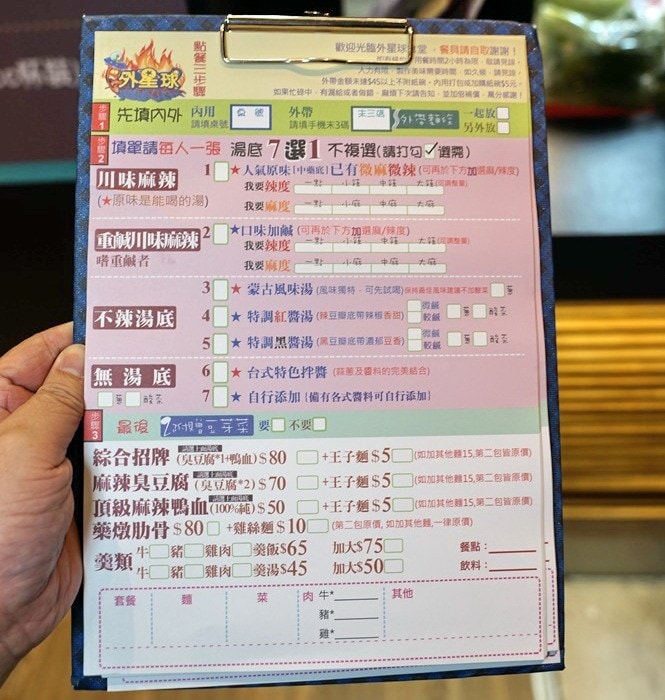 外星球
點餐三步驟
歡迎光臨外星球食堂,餐具請自取謝謝!
用餐時間2小時為限,敬請見諒。
人力有限,製作美味需要時間,如久候,請見諒。
外帶金額未達$45以上不附紙碗,內用打包或加購紙碗$5元。
如果忙碌中,有漏給或者做錯,麻煩下次請告知,並加倍補償,萬分感謝!
步驟1
先填內外 內用 桌號 外帶 末三碼 外帶麵條 一起放
請填桌號 請填手機末3碼 另外放
步驟2
填單請每人一張 湯底7選1 不複選(請打勾✓選項)
川味麻辣 1 ★人氣原味[中藥底]已有微麻微辣(可再於下方加選麻/辣度)
(★原味是能喝的湯) 我要辣度 一點 小辣 中辣 大辣(可調整量)
我要麻度 一點 小麻 中麻 大麻
重鹹川味麻辣 2 ★口味加鹹(可再於下方加選麻/辣度)
嗜重鹹者 我要辣度 一點 小辣 中辣 大辣(可調整量)
我要麻度 一點 小麻 中麻 大麻
不辣湯底
3 ★ 蒙古風味湯(風味獨特,可先試喝)保持最佳風味建議不加酸菜 蔥
4 ★ 特調紅醬湯(辣豆瓣底帶辣椒香甜) 微鹹 較鹹 蔥 酸菜
5 ★ 特調黑醬湯(黑豆瓣底帶濃郁豆香) 微鹹 較鹹 蔥 酸菜
無湯底 6 ★ 台式特色拌醬 (蒜蔥及醬料的完美結合)
蔥 酸菜 7 ★ 自行添加 [備有各式醬料可自行添加]
步驟3
最後 要 不要
綜合招牌 請選上面湯底 (臭豆腐*1+鴨血) $80 +王子麵$5 (如加其他麵15,第二包皆原價)
麻辣臭豆腐 請選上面湯底 (臭豆腐*2) $70 +王子麵$5 (如加其他麵15,第二包皆原價)
頂級麻辣鴨血 請選上面湯底 (100%純) $50 +王子麵$5 (如加其他麵15,第二包皆原價)
藥燉肋骨$80 +雞絲麵$10 (第二包原價,如加其他麵,一律原價)
羹類 牛 豬 雞肉 羹飯$65 加大$75 餐點:
牛 豬 雞肉 羹湯$45 加大$50 飲料:
套餐 麵 菜 肉 牛* 其他
豬*
雞*